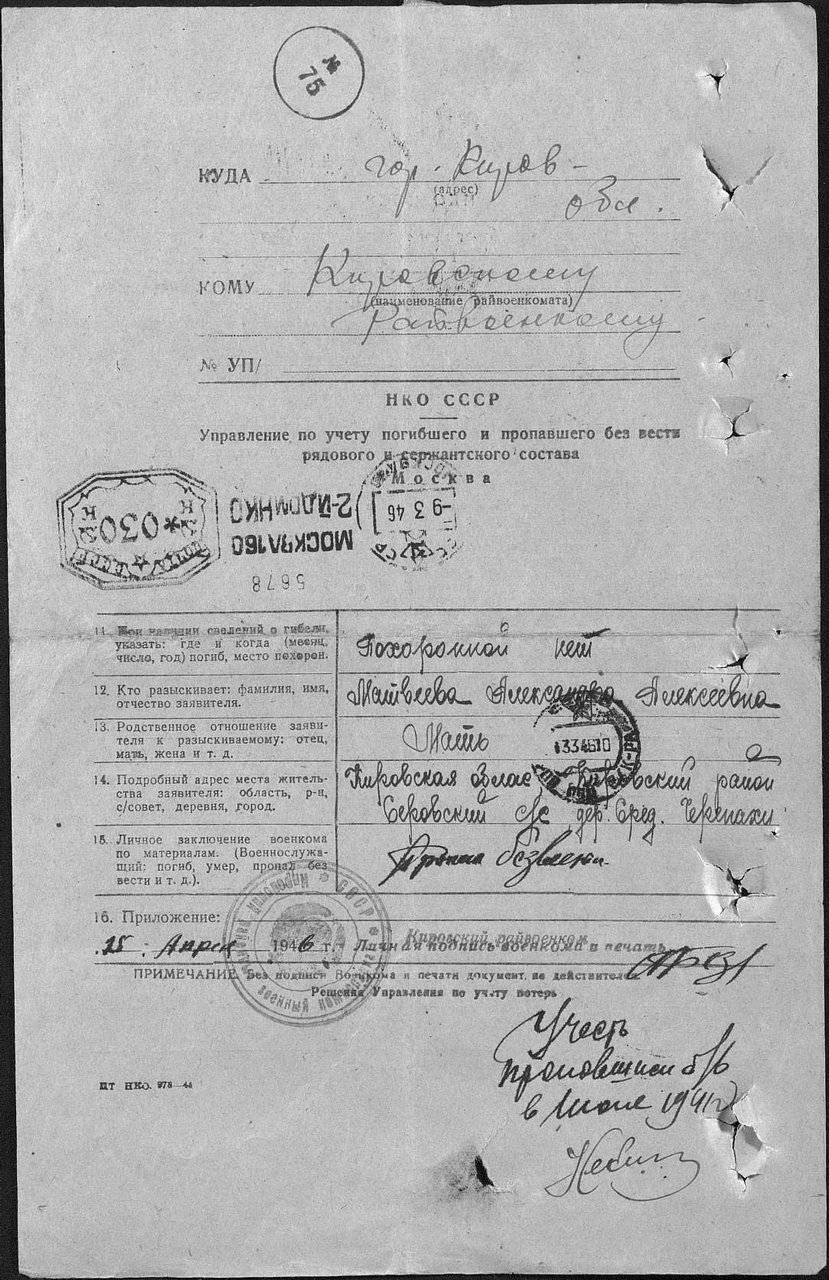 №
75
КУДА гор. Киров -
(адрес)
обл.
КОМУ Кировскому
(наименование райвоенкомата)
Райвоенкому
№ УП/
НКО СССР
Управление по учету погибшего и пропавшего без вести
рядового и сержантского состава
Москва
-9 3 46
МОСКВА 160
2-Й ДОМ НКО
ПОЧТА СССР
К *030 К
5678
11. При наличии сведений о гибели,
указать: где и когда (месяц,
число, год) погиб, место похорон.
Похоронной нет
12. Кто разыскивает: фамилия, имя,
отчество заявителя.
Матвеева Александра Алексеевна
13. Родственное отношение заяви-
теля к разыскиваемому: отец,
мать, жена и т. д.
Мать
14. Подробный адрес места житель-
ства заявителя: область, р-н,
с/совет, деревня, город.
Кировская облас Кировский район
с/с дер. Сред. Черепахи
15. Личное заключение военкома
по материалам. (Военнослужа-
щий: погиб, умер, пропал без
вести и т. д.).
Пропал безвести
16. Приложение:
Кировский райвоенком
25 Апреля 1946 г. Личная подпись военкома и печать
ПРИМЕЧАНИЕ Без подписи Военкома и печати документ не действителен
Решения Управления по учету потерь
Учесть
пропавшим б/в
в июле 1941 г
ЦТ НКО. 978—44